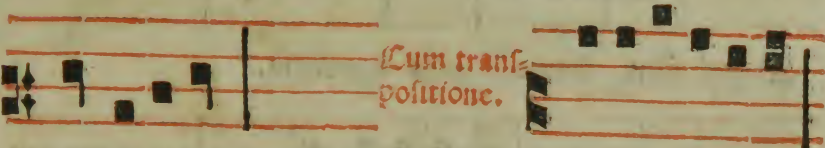 Cum tranſ⸗
poſitione.